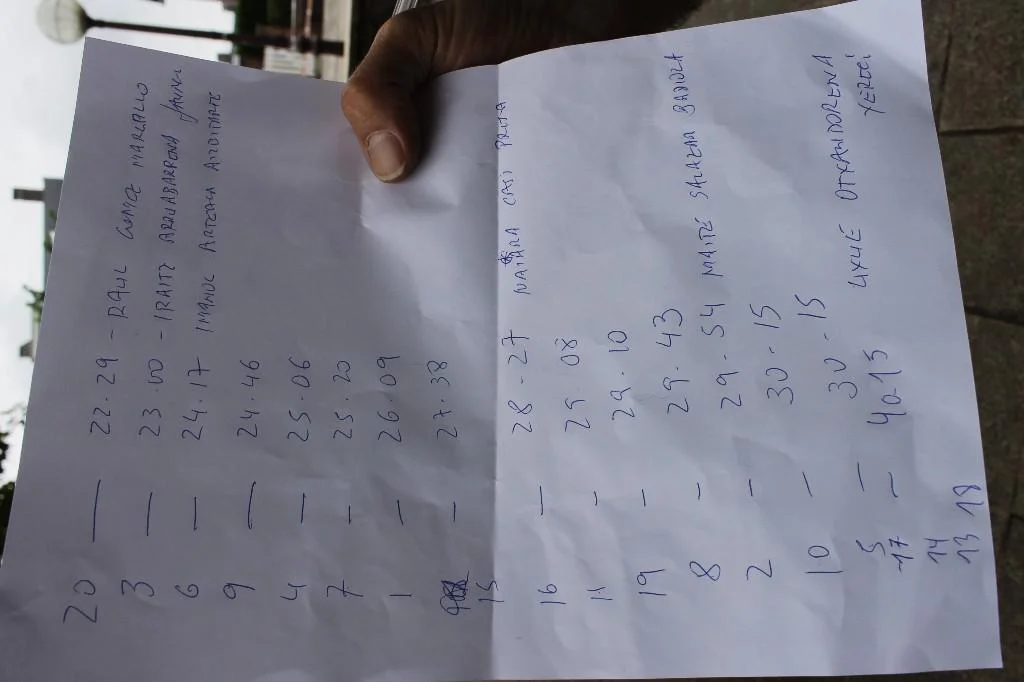 20 — 22.29 - RAUL GOMEZ MARGALLO
3 — 23.00 - IRAITZ ARRUABARRENA
6 — 24.17 IMANOL ARTEAGA
9 — 24.46
4 — 25.06
7 — 25.20
1 — 26.09
15 — 27.38
16 — 28.27 NAIARA
11 — 29.08
19 — 29.10
8 — 29.43
2 — 29.54 MAITE SALAZAR BADIOLA
10 — 30-15
5 — 30.15
17 — 40.15 UXUE OTXANDORENA
14
13 18